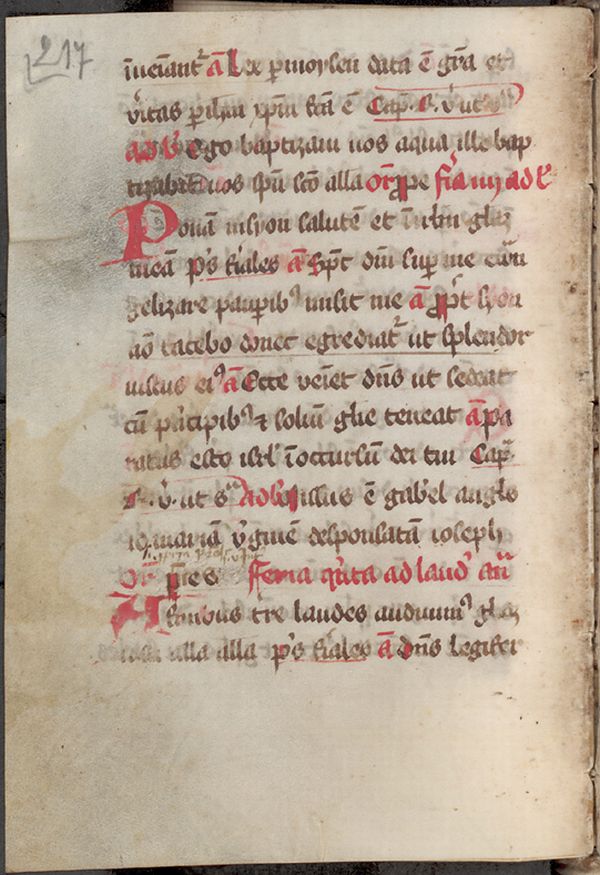 217
īueīant᷑ a̅ Lex p̲ moysen data ē gr̄a et
v̓itas p̲ ih̅m xp̅m fc̄a ē Cap̅. R. v̓. ut s᷑
ad b̓ Ego baptizaui uos aqua ille bap
tizabit uos spū sc̄o alla or̄ prope fr̄ia iiij ad l̓
Ponā in syon salutē et ī irl̄m gl̄az
meā p̓s fiales a̅ Sp̄c dn̄i sup̲ me euā
gelizare paup̲ib᷒ misit me a̅ prop̄t syon
nō tacebo donec egrediat᷑ ut splendor
iustus ei᷒ a̅ Ecce veīet dn̄s ut sedeat
cū pͥncipib᷒ ⁊ soliū gl̄ie teneat a̅ pa
ratus esto isrl̓ ī occursū dei tui Cap̅.
R. v̓. ut sᵃ ad b̓ Missus ē gab̓el angl̄s
ad mariā v̓ginē desponsatā ioseph
Or̄ p̄ces Feria qͥnta ad laud̓ an̄
A finibus tre laudes audiuim᷒ gl̄az
alla alla p̓s fiales a̅ dn̄s legifer